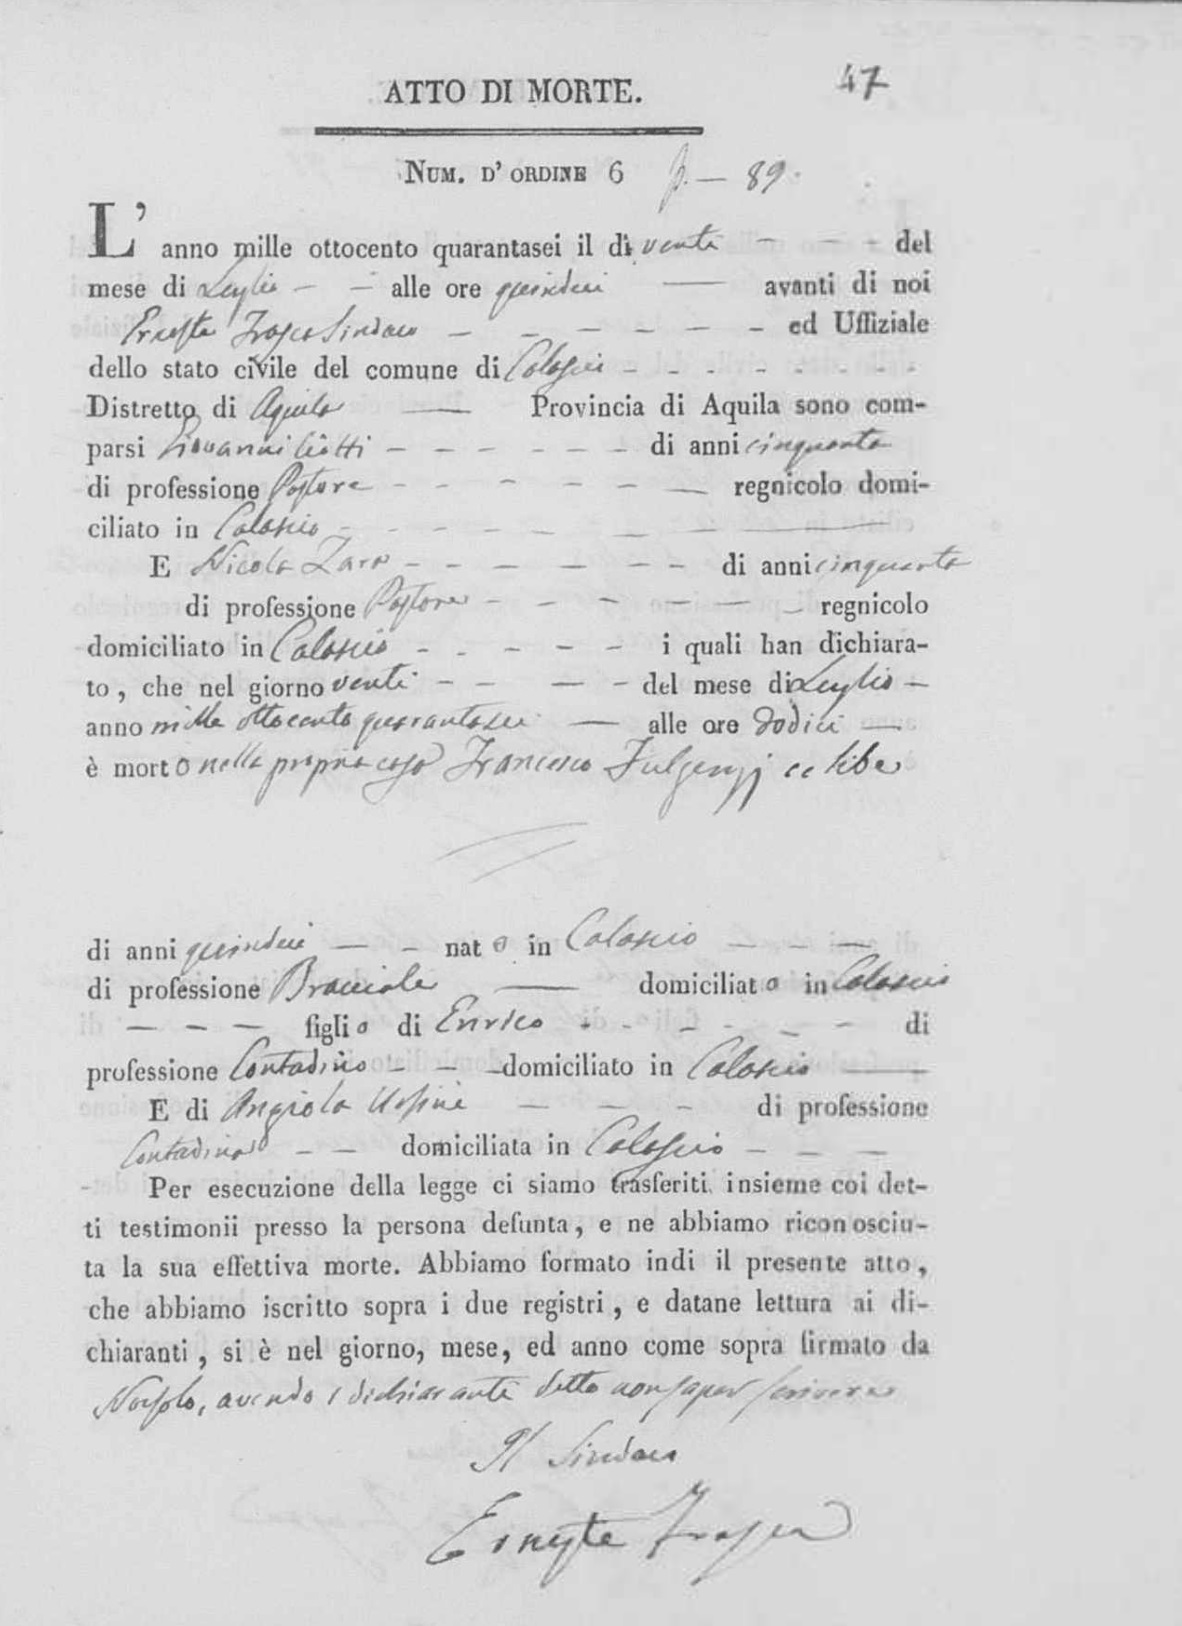 47
ATTO DI MORTE.
NUM. D' ORDINE 6 — 89.
L' anno mille ottocento quarantasei il dì venti — — — del
mese di Luglio — — alle ore quindici — avanti di noi
Erneste Frasca Sindaco — — — — — — ed Uffiziale
dello stato civile del comune di Calascio — — — — — — —
Distretto di Aquila — Provincia di Aquila sono com-
parsi Giovanni Ciotti — — — — — — di anni cinquanta
di professione Pastore — — — — — — regnicolo domi-
ciliato in Calascio — — — — — — —
E Nicola Zara — — — — — — di anni cinquanta
di professione Pastore — — — — — — regnicolo
domiciliato in Calascio — — — — — i quali han dichiara-
to, che nel giorno venti — — — — del mese di Luglio —
anno mille ottocento quarantasei — alle ore dodici —
è morto nella propria casa Francesco Fulgenzj celibe
di anni quindici — — nato in Calascio — — —
di professione Bracciale — domiciliato in Calascio
— — — figlio di Enrico — — — — — — di
professione Contadino — — — domiciliato in Calascio —
E di Angiola — — — di professione
Contadina — — domiciliata in Calascio — — —
Per esecuzione della legge ci siamo trasferiti insieme coi det-
ti testimonii presso la persona defunta, e ne abbiamo riconosciu-
ta la sua effettiva morte. Abbiamo formato indi il presente atto,
che abbiamo iscritto sopra i due registri, e datane lettura ai di-
chiaranti, si è nel giorno, mese, ed anno come sopra firmato da
Noi solo, avendo i dichiaranti detto non saper scrivere
Il Sindaco
Erneste Frasca